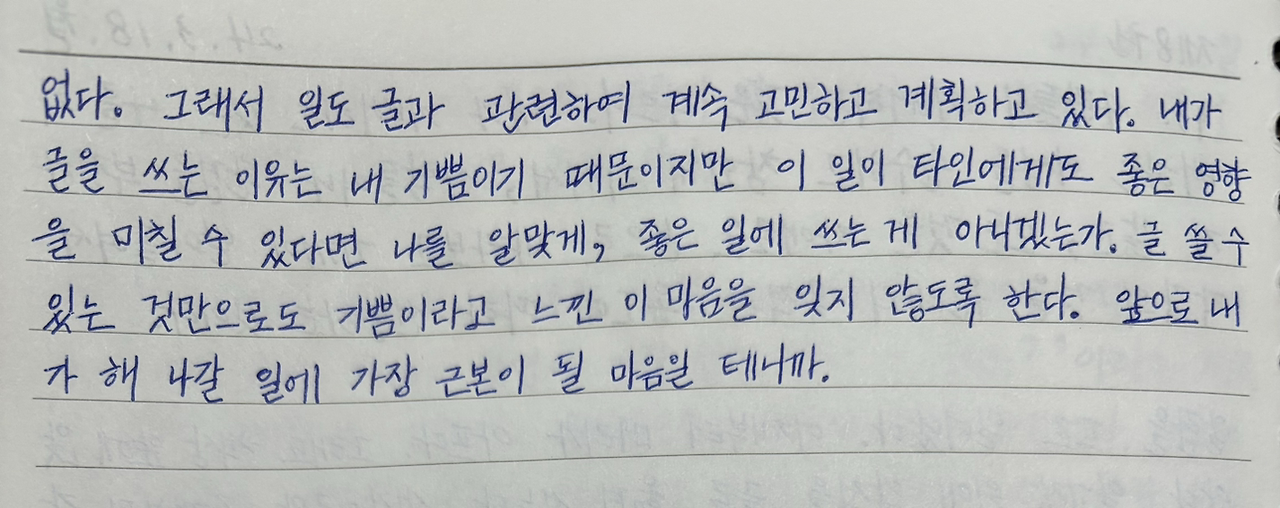 없다. 그래서 일도 글과 관련하여 계속 고민하고 계획하고 있다. 내가
글을 쓰는 이유는 내 기쁨이기 때문이지만 이 일이 타인에게도 좋은 영향
을 미칠 수 있다면 나를 알맞게, 좋은 일에 쓰는 게 아니겠는가. 글 쓸 수
있는 것만으로도 기쁨이라고 느낀 이 마음을 잊지 않도록 한다. 앞으로 내
가 해 나갈 일에 가장 근본이 될 마음일 테니까.